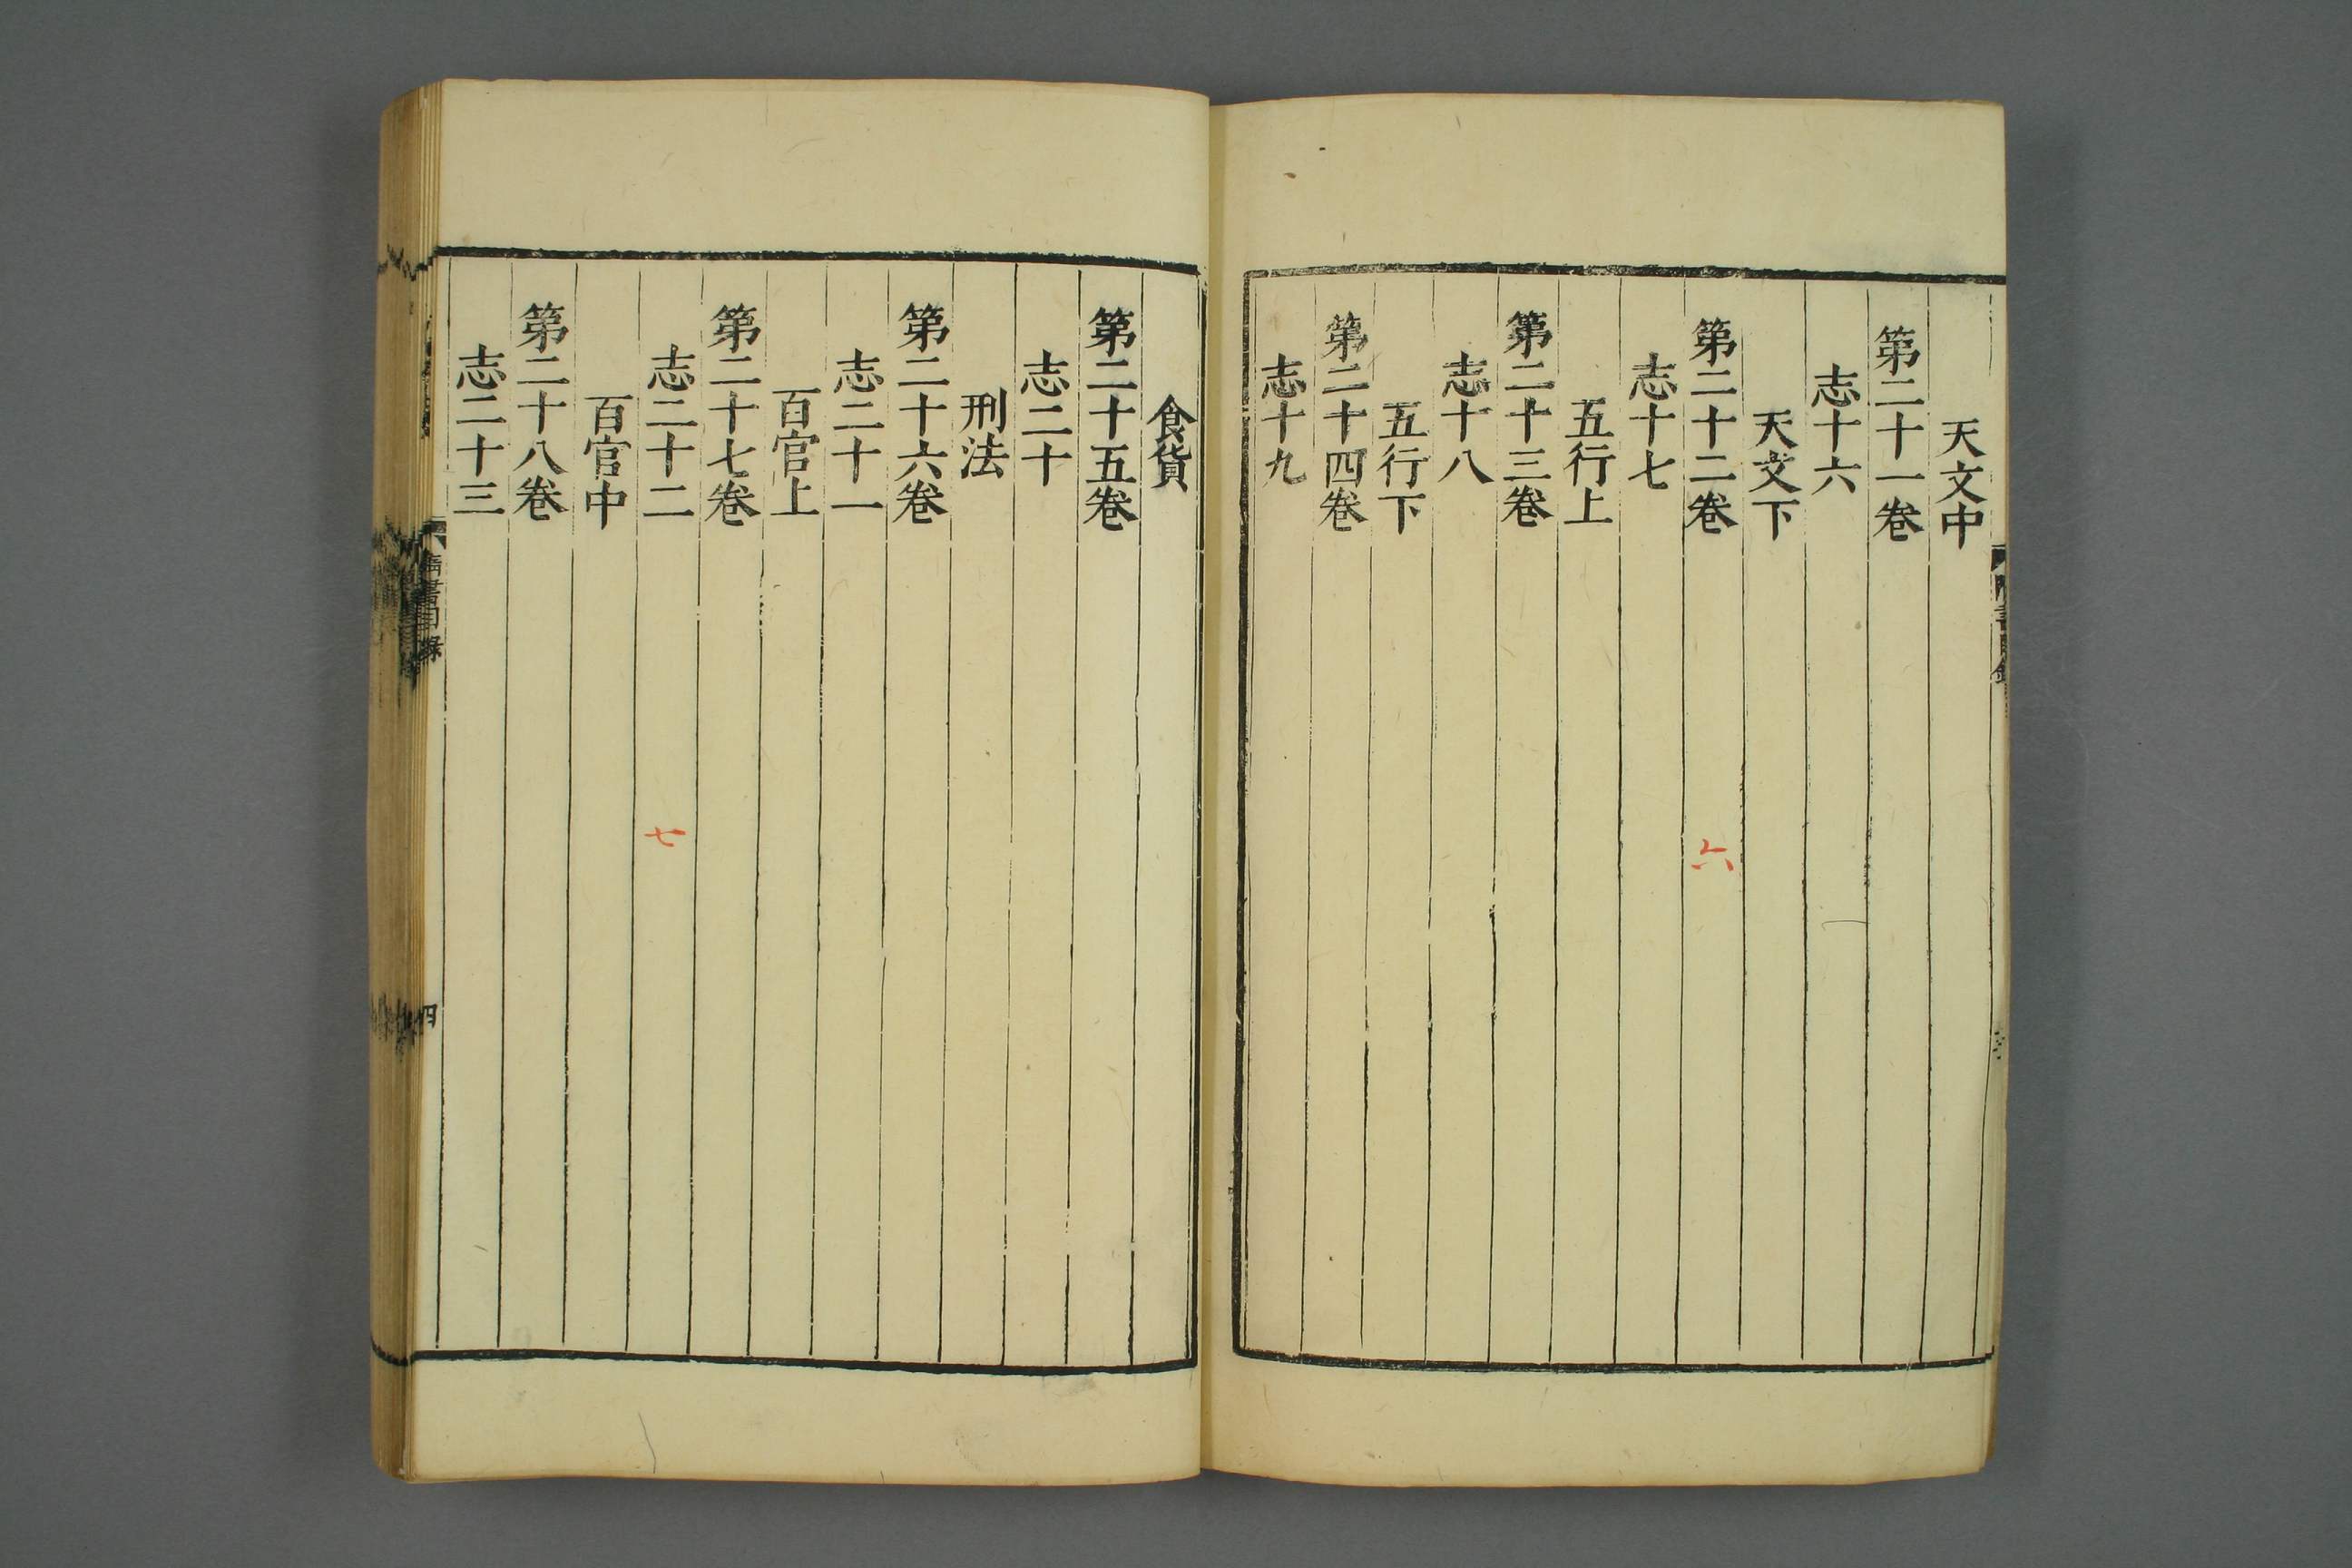 天文中
第二十一卷
志十六
天文下
第二十二卷
志十七
五行上
第二十三卷
志十八
五行下
第二十四卷
志十九
六
食貨
第二十五卷
志二十
刑法
第二十六卷
志二十一
百官上
第二十七卷
志二十二
百官中
第二十八卷
志二十三
七
四